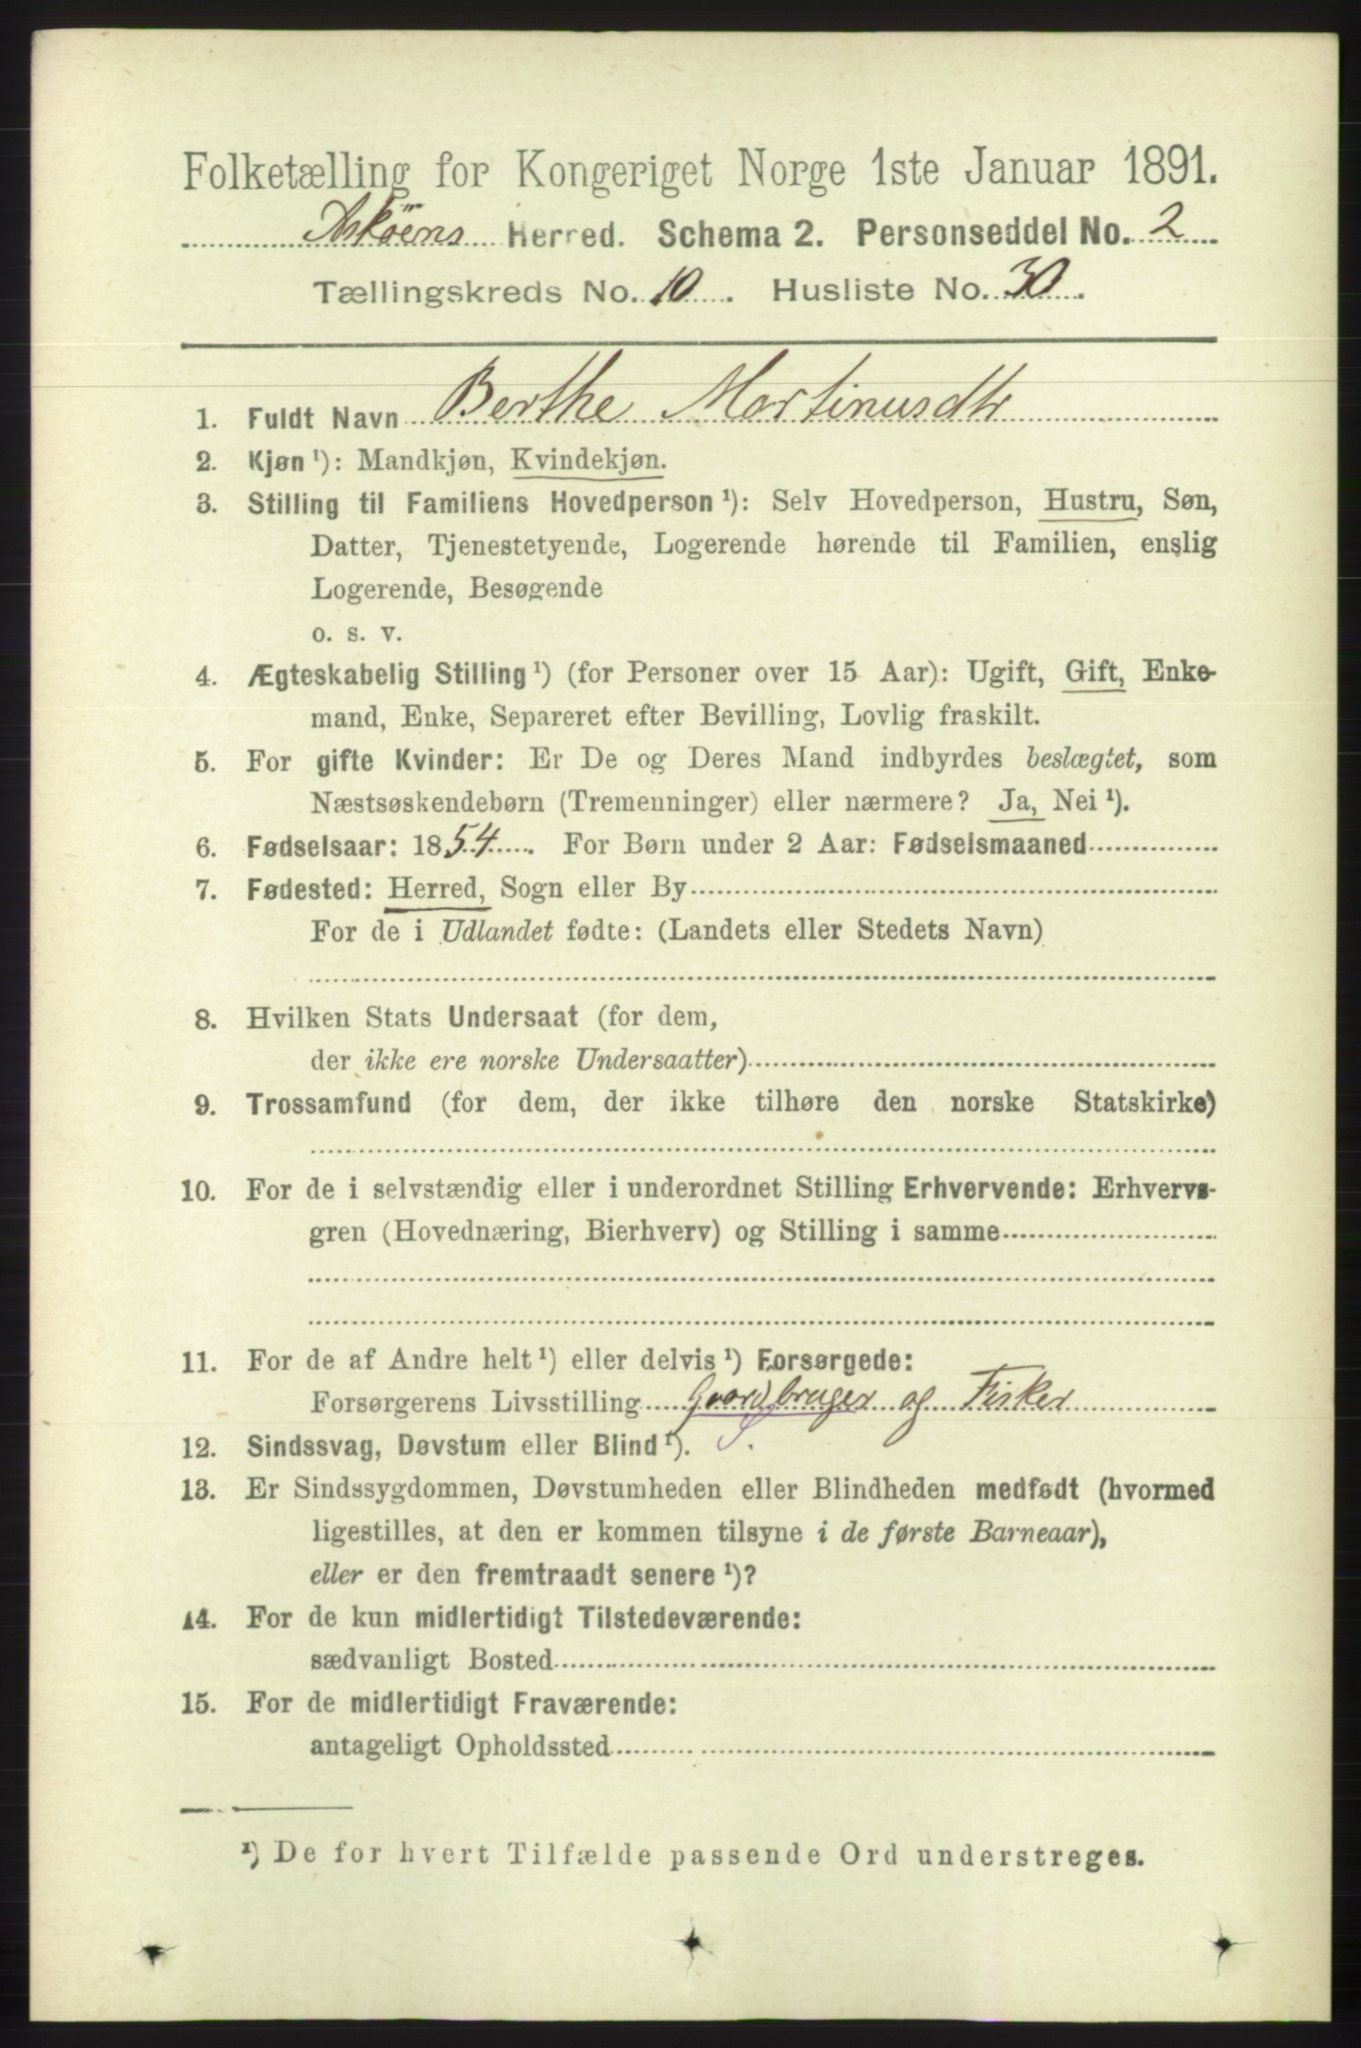 Folketælling for Kongeriget Norge 1ste Januar 1891.
Askøens Herred. Schema 2. Personseddel No. 2
Tællingskreds No. 10. Husliste No. 30.
1. Fuldt Navn Berthe Martinusdtr
2. Kjøn ¹): Mandkjøn, Kvindekjøn.
3. Stilling til Familiens Hovedperson ¹): Selv Hovedperson, Hustru, Søn,
Datter, Tjenestetyende, Logerende hørende til Familien, enslig
Logerende, Besøgende
o. s. v.
4. Ægteskabelig Stilling ¹) (for Personer over 15 Aar): Ugift, Gift, Enke-
mand, Enke, Separeret efter Bevilling, Lovlig fraskilt.
5. For gifte Kvinder: Er De og Deres Mand indbyrdes beslægtet, som
Næstsøskendebørn (Tremenninger) eller nærmere? Ja, Nei ¹).
6. Fødselsaar: 1854. For Børn under 2 Aar: Fødselsmaaned
7. Fødested: Herred, Sogn eller By
For de i Udlandet fødte: (Landets eller Stedets Navn)
8. Hvilken Stats Undersaat (for dem,
der ikke ere norske Undersaatter)
9. Trossamfund (for dem, der ikke tilhøre den norske Statskirke)
10. For de i selvstændig eller i underordnet Stilling Erhvervende: Erhvervs-
gren (Hovednæring, Bierhverv) og Stilling i samme
11. For de af Andre helt ¹) eller delvis ¹) Forsørgede:
Forsørgerens Livsstilling Gaardbruger og Fisker
12. Sindssvag, Døvstum eller Blind ¹). S.
13. Er Sindssygdommen, Døvstumheden eller Blindheden medfødt (hvormed
ligestilles, at den er kommen tilsyne i de første Barneaar),
eller er den fremtraadt senere ¹)?
14. For de kun midlertidigt Tilstedeværende:
sædvanligt Bosted
15. For de midlertidigt Fraværende:
antageligt Opholdssted
¹) De for hvert Tilfælde passende Ord understreges.